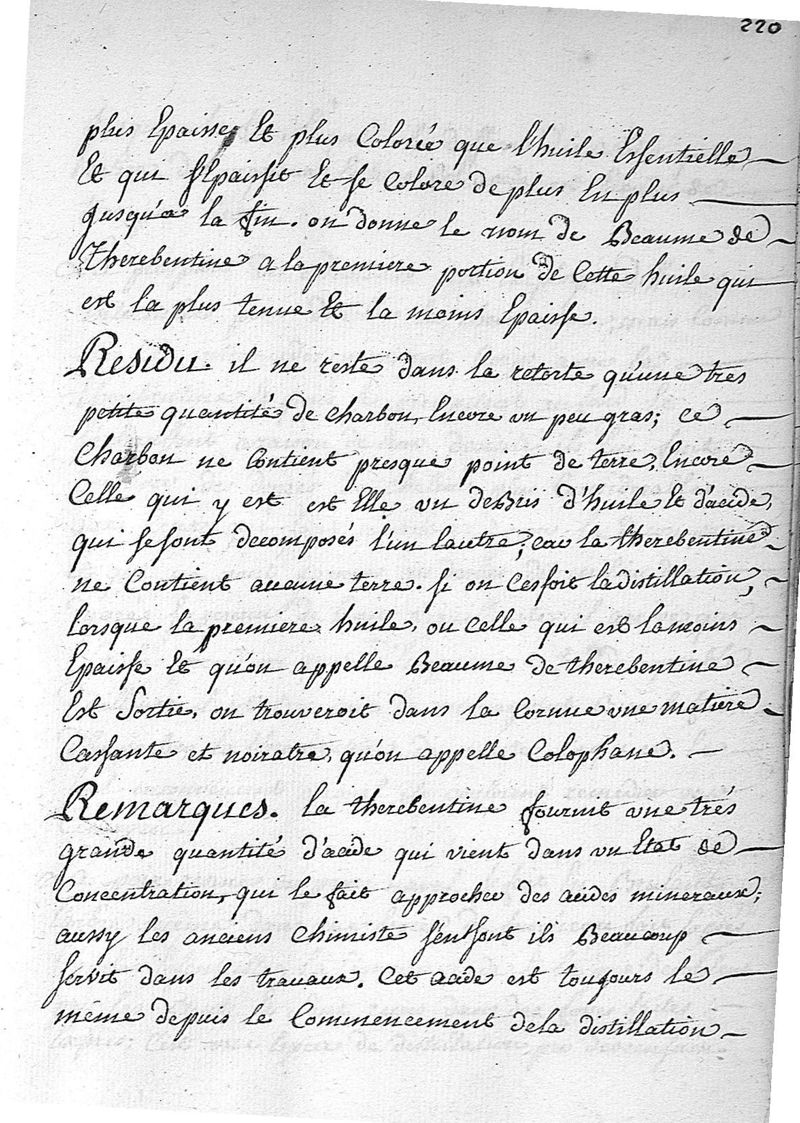 220
plus Epaisse Et plus Colorée que l'huile Essentielle
Et qui s'Epaissit Et se Colore de plus En plus
jusqu'a la fin. on donne le nom de Beaume de
Therebentine a la premiere portion de Cette huile qui
est la plus tenue Et la moins Epaisse.
Residu. il ne reste dans la retorte qu'une tres
petite quantité de charbon, Encore un peu gras; ce
Charbon ne Contient presque point de terre, Encore
Celle qui y est est Elle un deBris d'huile Et d'acide,
qui se sont decomposés l'un lautre, car la therebentine
ne Contient aucune terre. si on Cessoit la distillation,
lorsque la premiere huile, ou Celle qui est la moins
Epaisse Et qu'on appelle Beaume de therebentine
Est Sortie, on trouveroit dans la Cornue une matiere
Cassante et noiratre, qu'on appelle Colophane.
Remarques. la therebentine fournit une trés
grande quantité d'acide qui vient dans un Etat de
Concentration, qui le fait approcher des acides mineraux;
aussy les anciens Chimiste s'en sont ils Beaucoup
servit dans les travaux. Cet acide est toujours le
même depuis le Commencement de la distillation